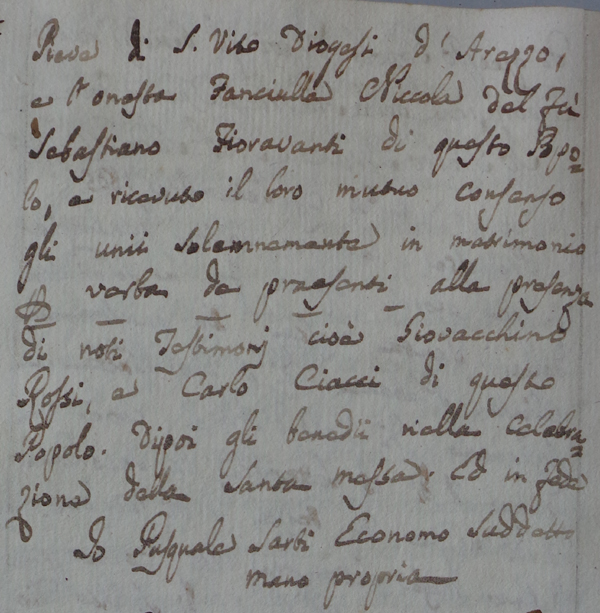 Pieve di S. Vito Diogesi d'Arezzo,
e l'onesta Fanciulla Niccola del fù
Sebastiano Fioravanti di questo Popo=
lo, e ricevuto il loro mutuo consenso
gli unii solennemente in matrimonio
P verba de praesenti alla presenza
di noti Testimonj cioè Giovacchino
Rossi, e Carlo Ciacci di questo
Popolo. Dipoi gli benedii nella celebra=
zione della Santa messa. Ed in fede
Io Pasquale Sarti Economo Suddetto
mano propria